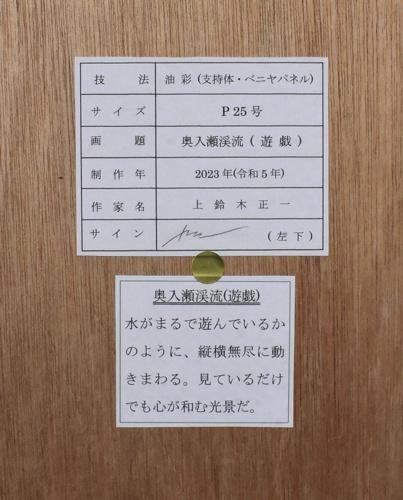 技法 油彩(支持体・ベニヤパネル)
サイズ P25号
画題 奥入瀬渓流(遊戯)
制作年 2023年(令和5年)
作家名 上鈴木正一
サイン (左下)
奥入瀬渓流(遊戯)
水がまるで遊んでいるか
のように、縦横無尽に動
きまわる。見ているだけ
でも心が和む光景だ。